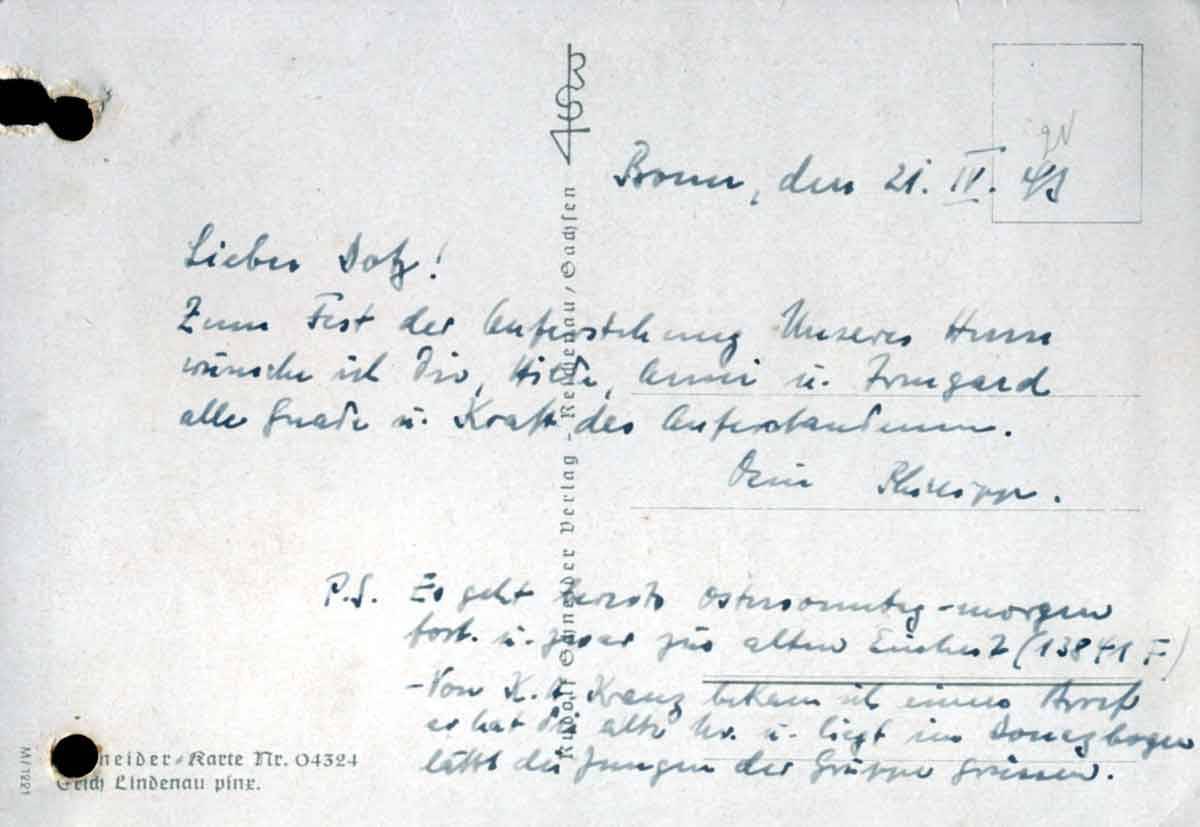 Bonn, den 21. IV. 43
Lieber Dotz!
Zum Fest der Auferstehung Unseres Herrn
wünsche ich Dir, Hilde, Anni u. Irmgard
alle Gnade u. Kraft des Auferstandenen.
Dein Philipp.
P.S. Es geht bereits Ostersonntag-morgen
fort. u. zwar zur alten Einheit (13841 F)
-Von K. H. Kranz bekam ich einen Brief
er hat die alte Nr. u. liegt im Donezbogen
lässt die Jungen der Gruppe grüssen.
Rudolf Schneider Verlag, Reichenau/Sachsen
Schneider-Karte Nr. 04324
Erich Lindenau pinx.
M/1221